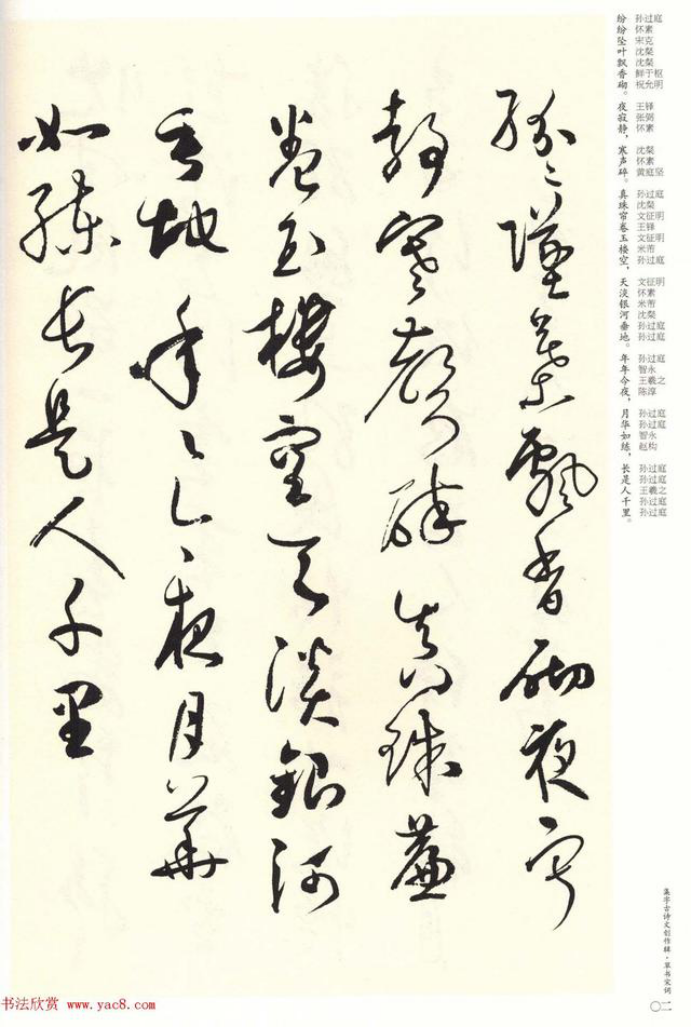 纷纷坠叶飘香砌。夜寂静，寒声碎。真珠帘卷玉楼空，天淡银河垂地。年年今夜，月华如练，长是人千里。
孙过庭
怀素
宋克
沈粲
沈粲
鲜于枢
祝允明
王铎
张弼
怀素
沈粲
怀素
黄庭坚
孙过庭
沈粲
文征明
王铎
文征明
米芾
孙过庭
文征明
怀素
米芾
沈粲
孙过庭
孙过庭
孙过庭
智永
王羲之
陈淳
孙过庭
孙过庭
智永
赵构
孙过庭
孙过庭
王羲之
孙过庭
孙过庭
紛〻墜葉飄香砌夜寂
靜寒聲碎真珠簾
卷玉樓空天淡銀河
垂地年〻今夜月華
如練長是人千里
集字古诗文创作辑·草书宋词
〇二
书法欣赏 www.yac8.com